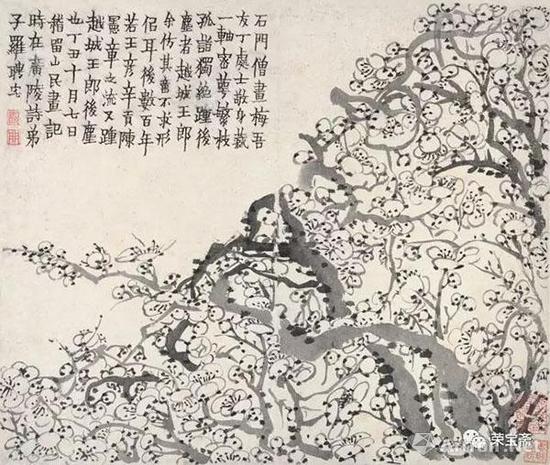 石門僧畫梅吾
友丁處士敬身藏
一軸密蕚繁枝
孤詣獨絕踵後
塵者越城王郎
余仿其意不求形
佀耳後數百年
若王彥辛貢陳
憲章之流又踵
越城王郎後塵
也丁丑十月七日
稽留山民畫記
時在廣陵詩弟
子羅聘
荣宝斋